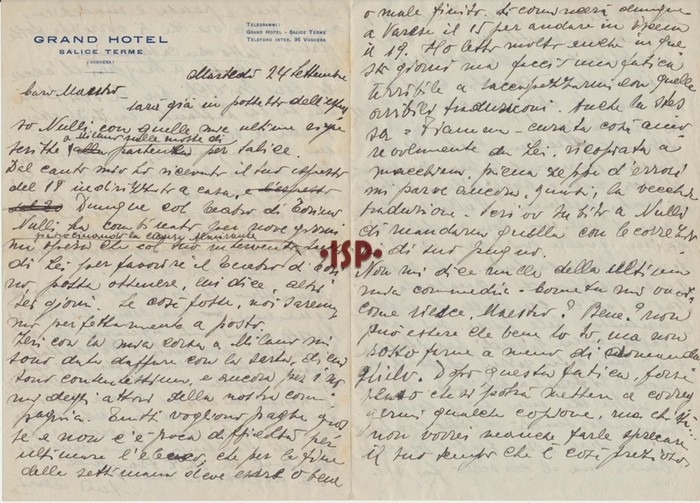 GRAND HOTEL
SALICE TERME
(VOGHERA)
TELEGRAMMI:
GRAND HOTEL - SALICE TERME
TELEFONO INTER. 96 VOGHERA
Martedì 24 Settembre
Caro Maestro
sarà già in possesso dell'espres
so Nulli con quelle mie ultime espre
a Milano sulle mosse di
partenza per Salice.
Dal canto mio ho ricevuto il suo espresso
del 19 indirizzato a casa,
Dunque col teatro di Torino
Nulli ha combinato per nove giorni
mi spiega che col suo intervento
di Lei per favorire il Teatro di Tori
no possa ottenere, mi dice, altri
sei giorni. Se così fosse, noi sarem
mo perfettamente a posto.
Ieri con la mia corsa a Milano mi
sono data daffare con la sarta, di cui
sono contentissima, e ancora per i no
mi degli attori della nostra com
pagnia. Tutti vogliono paghe gros
se e non c'è poca difficoltà per
ultimare l'elenco, che per la fine
della settimana deve essere o bene
o male finito. Si comincerà dunque
a Varese il 15 per andare in
il 19. Ho letto molto anche in que
sti giorni ma faccio una fatica
terribile a raccapezzarmi con quelle
orribili traduzioni. Anche la stes
sa "Fiamma" curata così amo
revolmente da Lei, ricopiata a
macchina, piena zeppa d'errori
mi parve ancora, quasi, la vecchia
traduzione. Scrivo subito a Nulli
di mandarmi quella con le correzio
di suo pugno.
Non mi dice nulla della ultima
mia commedia. Come
come riesce, Maestro? Bene? Non
può essere che bene lo so, ma non
posso farne a meno di domanda
glielo. Dopo questa fatica, forse
che si potrà mettere a correg
germi qualche copione, ma che
non vorrei neanche farle sprecare
il suo tempo che è così prezioso.
·ISP·